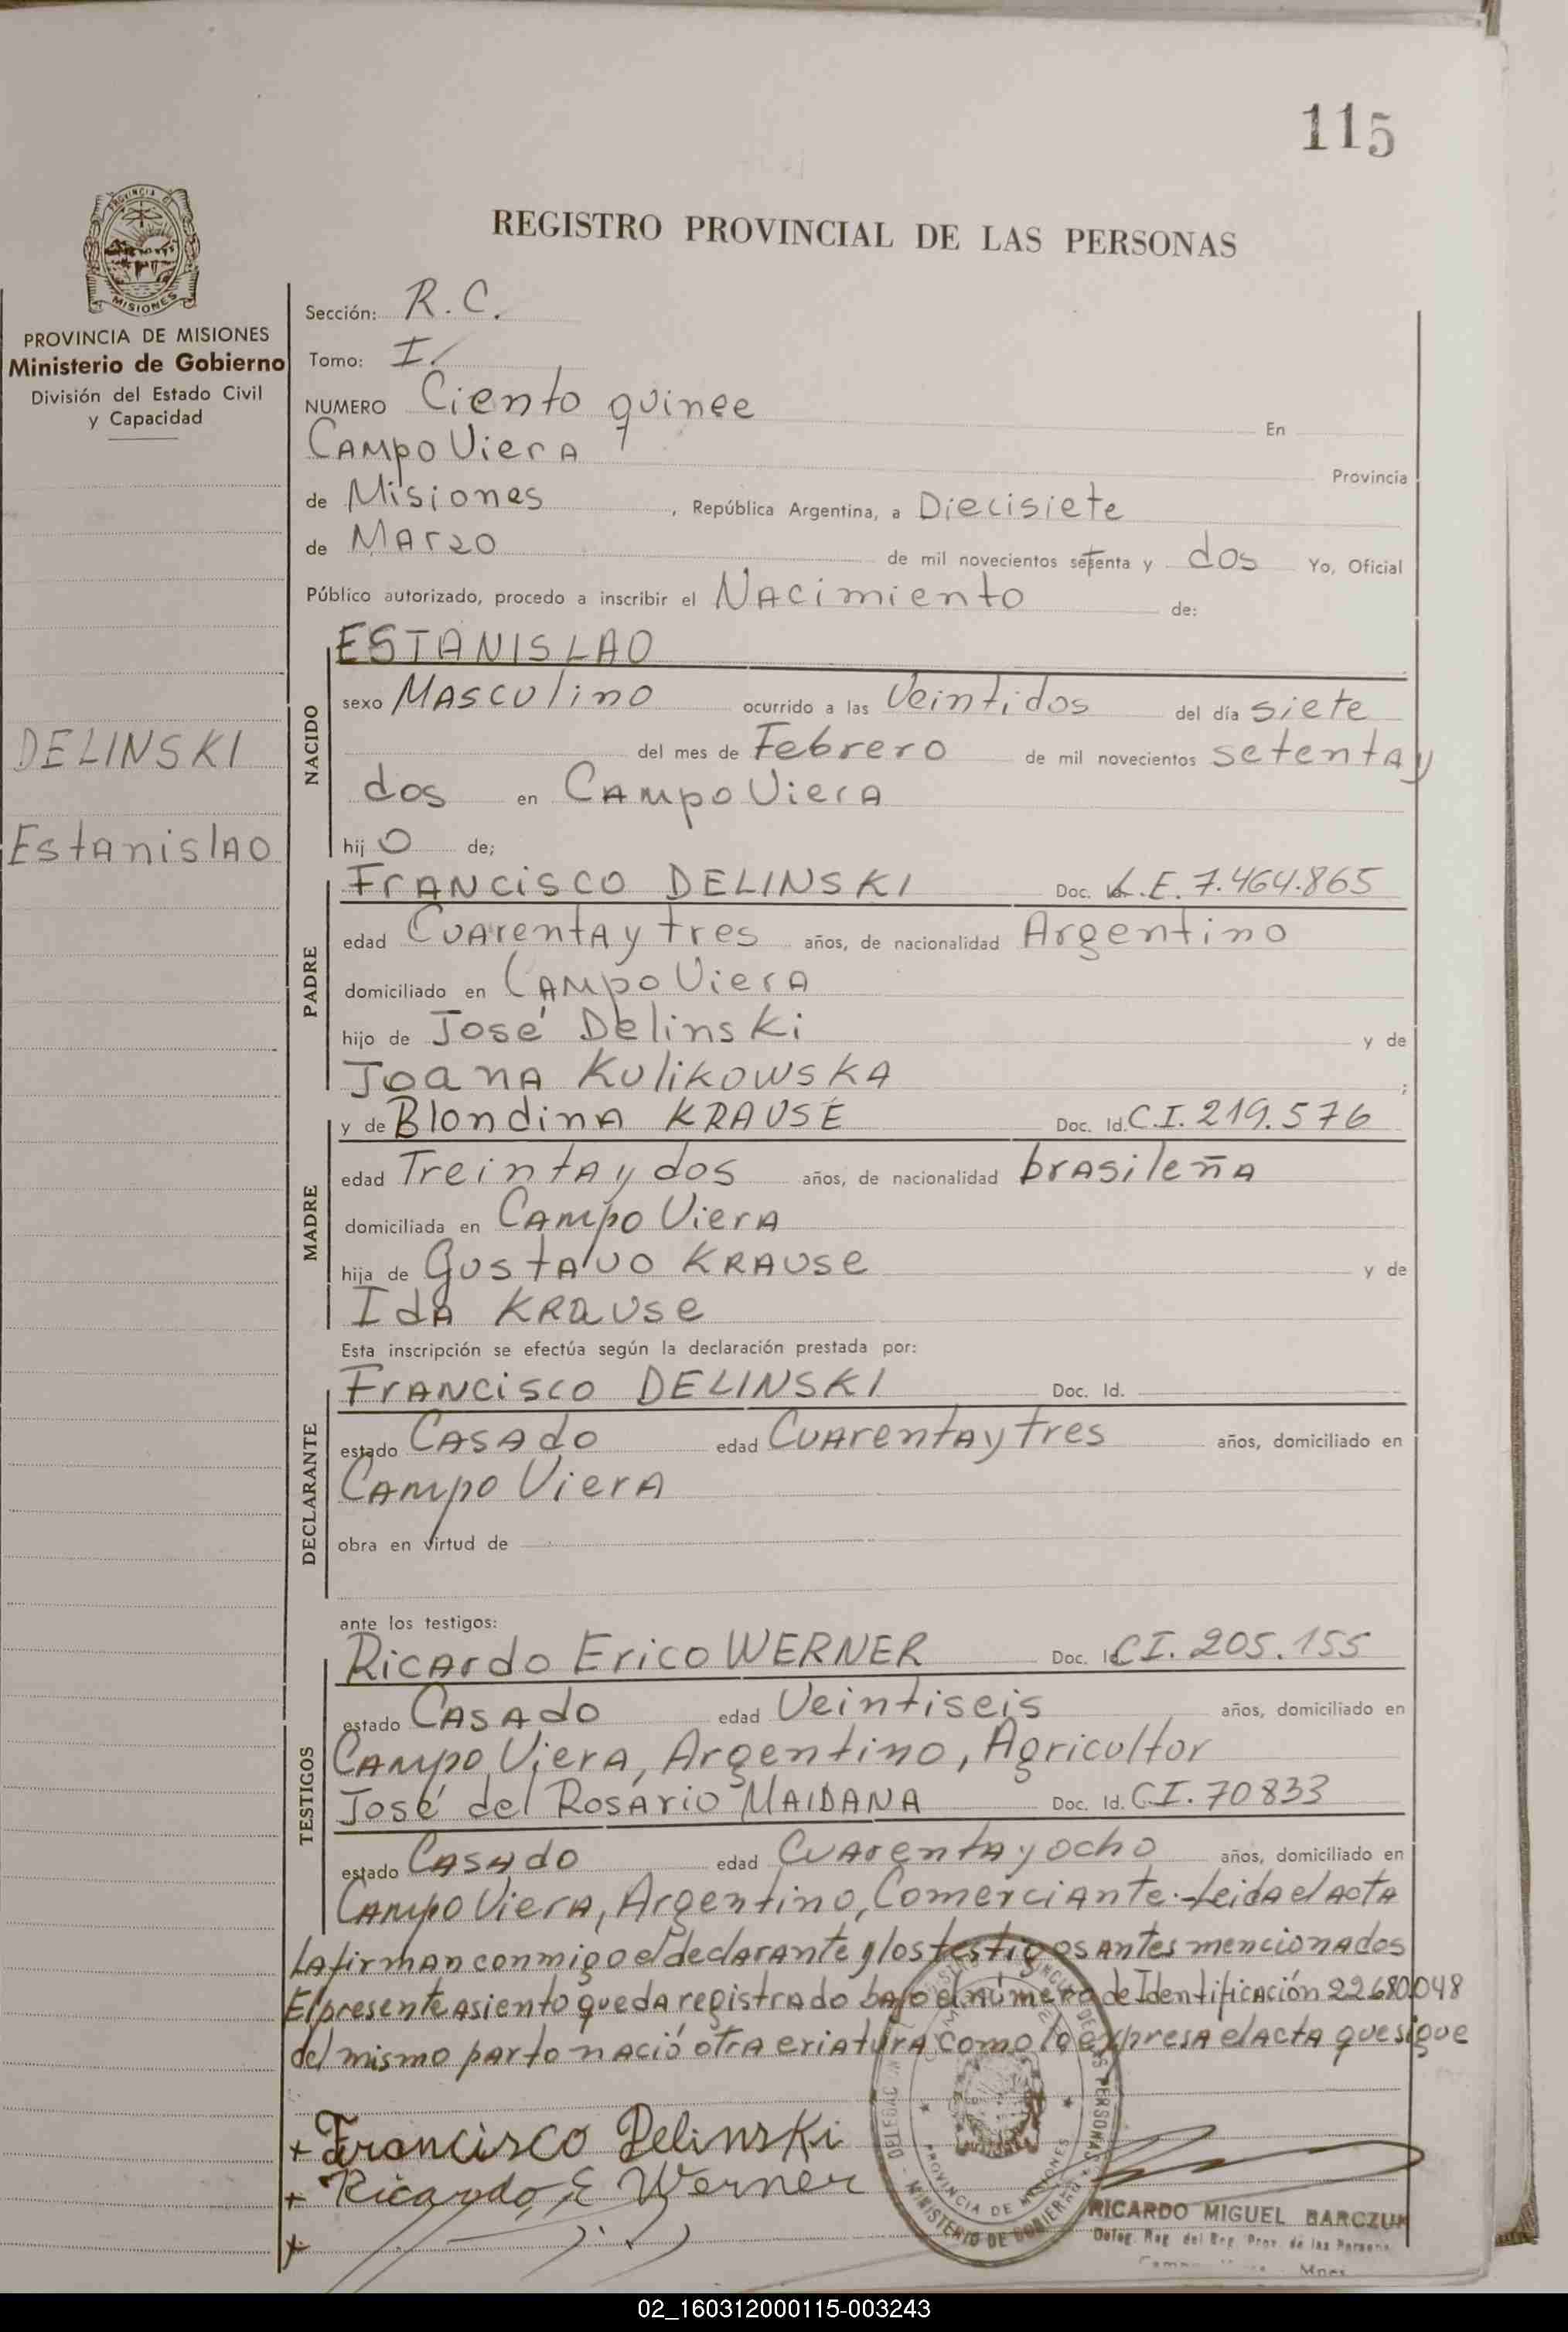 115
PROVINCIA DE MISIONES
Ministerio de Gobierno
División del Estado Civil
y Capacidad
DELINSKI
Estanislao
REGISTRO PROVINCIAL DE LAS PERSONAS
Sección: R.C.
Tomo: I
NUMERO Ciento quince En
Campo Viera Provincia
de Misiones, República Argentina, a Diecisiete
de Marzo de mil novecientos setenta y dos Yo, Oficial
Público autorizado, procedo a inscribir el Nacimiento de:
NACIDO
ESTANISLAO
sexo Masculino ocurrido a las Veintidos del día siete
del mes de Febrero de mil novecientos setenta y
dos en Campo Viera
hijo de;
PADRE
Francisco DELINSKI Doc. L.E. 7.464.865
edad Cuarenta y tres años, de nacionalidad Argentino
domiciliado en Campo Viera
hijo de José Delinski y de
Joana Kulikowska ;
MADRE
y de Blondina KRAUSE Doc. Id. C.I. 219.576
edad Treinta y dos años, de nacionalidad brasileña
domiciliada en Campo Viera
hija de Gustavo Krause y de
Ida Krause
Esta inscripción se efectúa según la declaración prestada por:
DECLARANTE
Francisco DELINSKI Doc. Id.
estado Casado edad Cuarenta y tres años, domiciliado en
Campo Viera
obra en virtud de
ante los testigos:
TESTIGOS
Ricardo Erico WERNER Doc. Id C.I. 205.155
estado Casado edad Veintiseis años, domiciliado en
Campo Viera, Argentino, Agricultor
José del Rosario MAIDANA Doc. Id. C.I. 70833
estado Casado edad Cuarenta y ocho años, domiciliado en
Campo Viera, Argentino, Comerciante.- Leida el acta
la firman conmigo el declarante y los testigos antes mencionados
El presente asiento queda registrado bajo el número de Identificación 22680048
del mismo parto nació otra criatura como lo expresa el acta que sigue
+ Francisco Delinski
+ Ricardo E Werner
+
PROVINCIA DE MISIONES
MINISTERIO DE GOBIERNO
RICARDO MIGUEL BARCZUK
Deleg. Reg. del Reg. Prov. de las Persona
Mnes
02_160312000115-003243